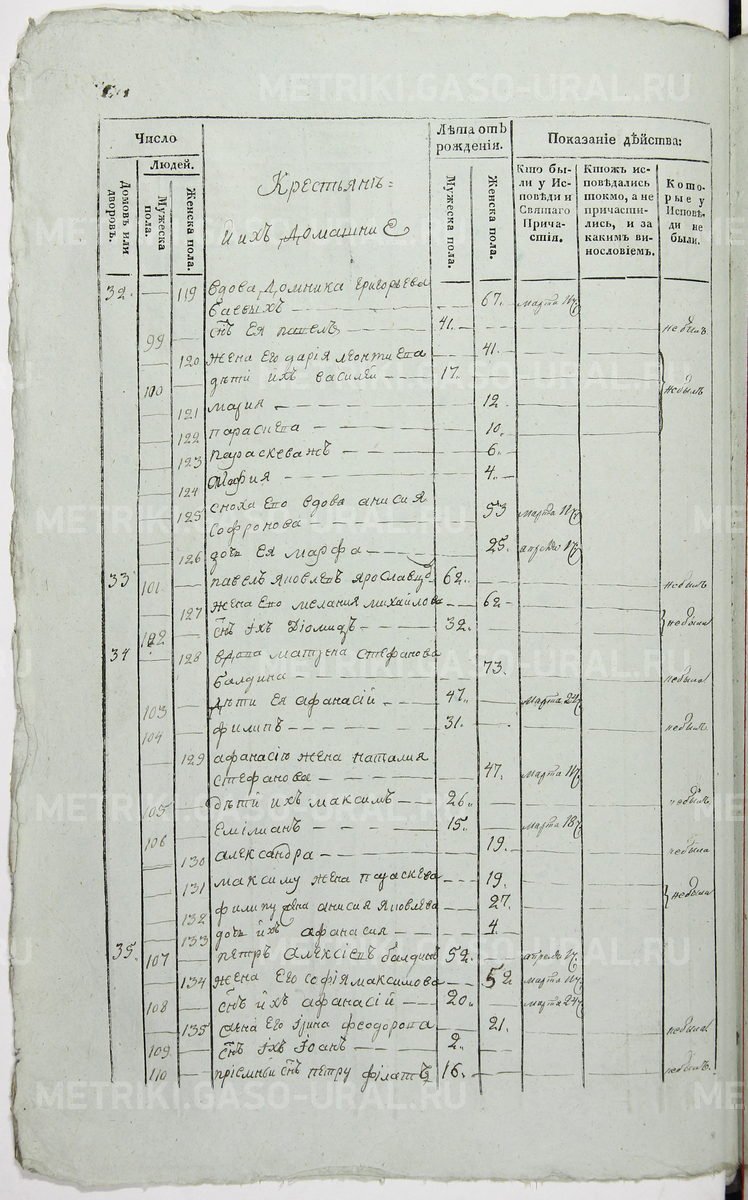 Число
Людей.
Домовъ или дворовъ.
Мужеска пола.
Женска пола.
Крестьянѣ
и ихъ домашниѣ
Лѣта отъ рожденія.
Мужеска пола.
Женска пола.
Показаніе дѣйства:
Кто были у Исповѣди и Святаго Причастія.
Ктожъ исповѣдались токмо, а не причастились, и за какимъ винословіемъ.
Которые у Исповѣди не были.
32 119 вдова домника григорьева
баевыхъ 67. марта
99 Сн҃ъ ея павелъ 41. небылъ
120 жена его дарія леонтиева 41.
100 дѣтій ихъ василей 17. небылъ
121 мария 12
122 параскева 10.
123 параскеважъ 6.
124 марфия 4.
125 сноха его вдова анисия
софронова 53 марта
126 дочь ея марфа 25. апреля
33 101 павелъ яковлевъ ярославцо 62. небылъ
127 жена его мелания михаилова 62
102 Сн҃ъ іхъ діомидъ 32. небыли
34 128 вдова матрена стефанова
балдина 73. небыла
103 дѣти ея афанасій 47. марта
104 филипъ 31. небылъ
129 афанасію жена наталия
стефанова 47. марта
105 дѣтій ихъ максимъ 26. небылъ
106 емілианъ 15. марта
130 александра 19. небыла
131 максиму жена параскева 19.
132 филипу жена анисия яковлева 27. небыли
133 дочь ихъ афанасия 4
35. 107 петръ алексіевъ балдинъ 52. апреля
134 жена его софія максимова 52 марта
108 Сн҃ъ ихъ афанасій 20. марта
135 жена его ірина феодорова 21. небыла
109 Сн҃ъ іхъ іоанъ 2.
110 пріемный Сн҃ъ петру філатъ 16. небылъ
METRIKI.GASO-URAL.RU